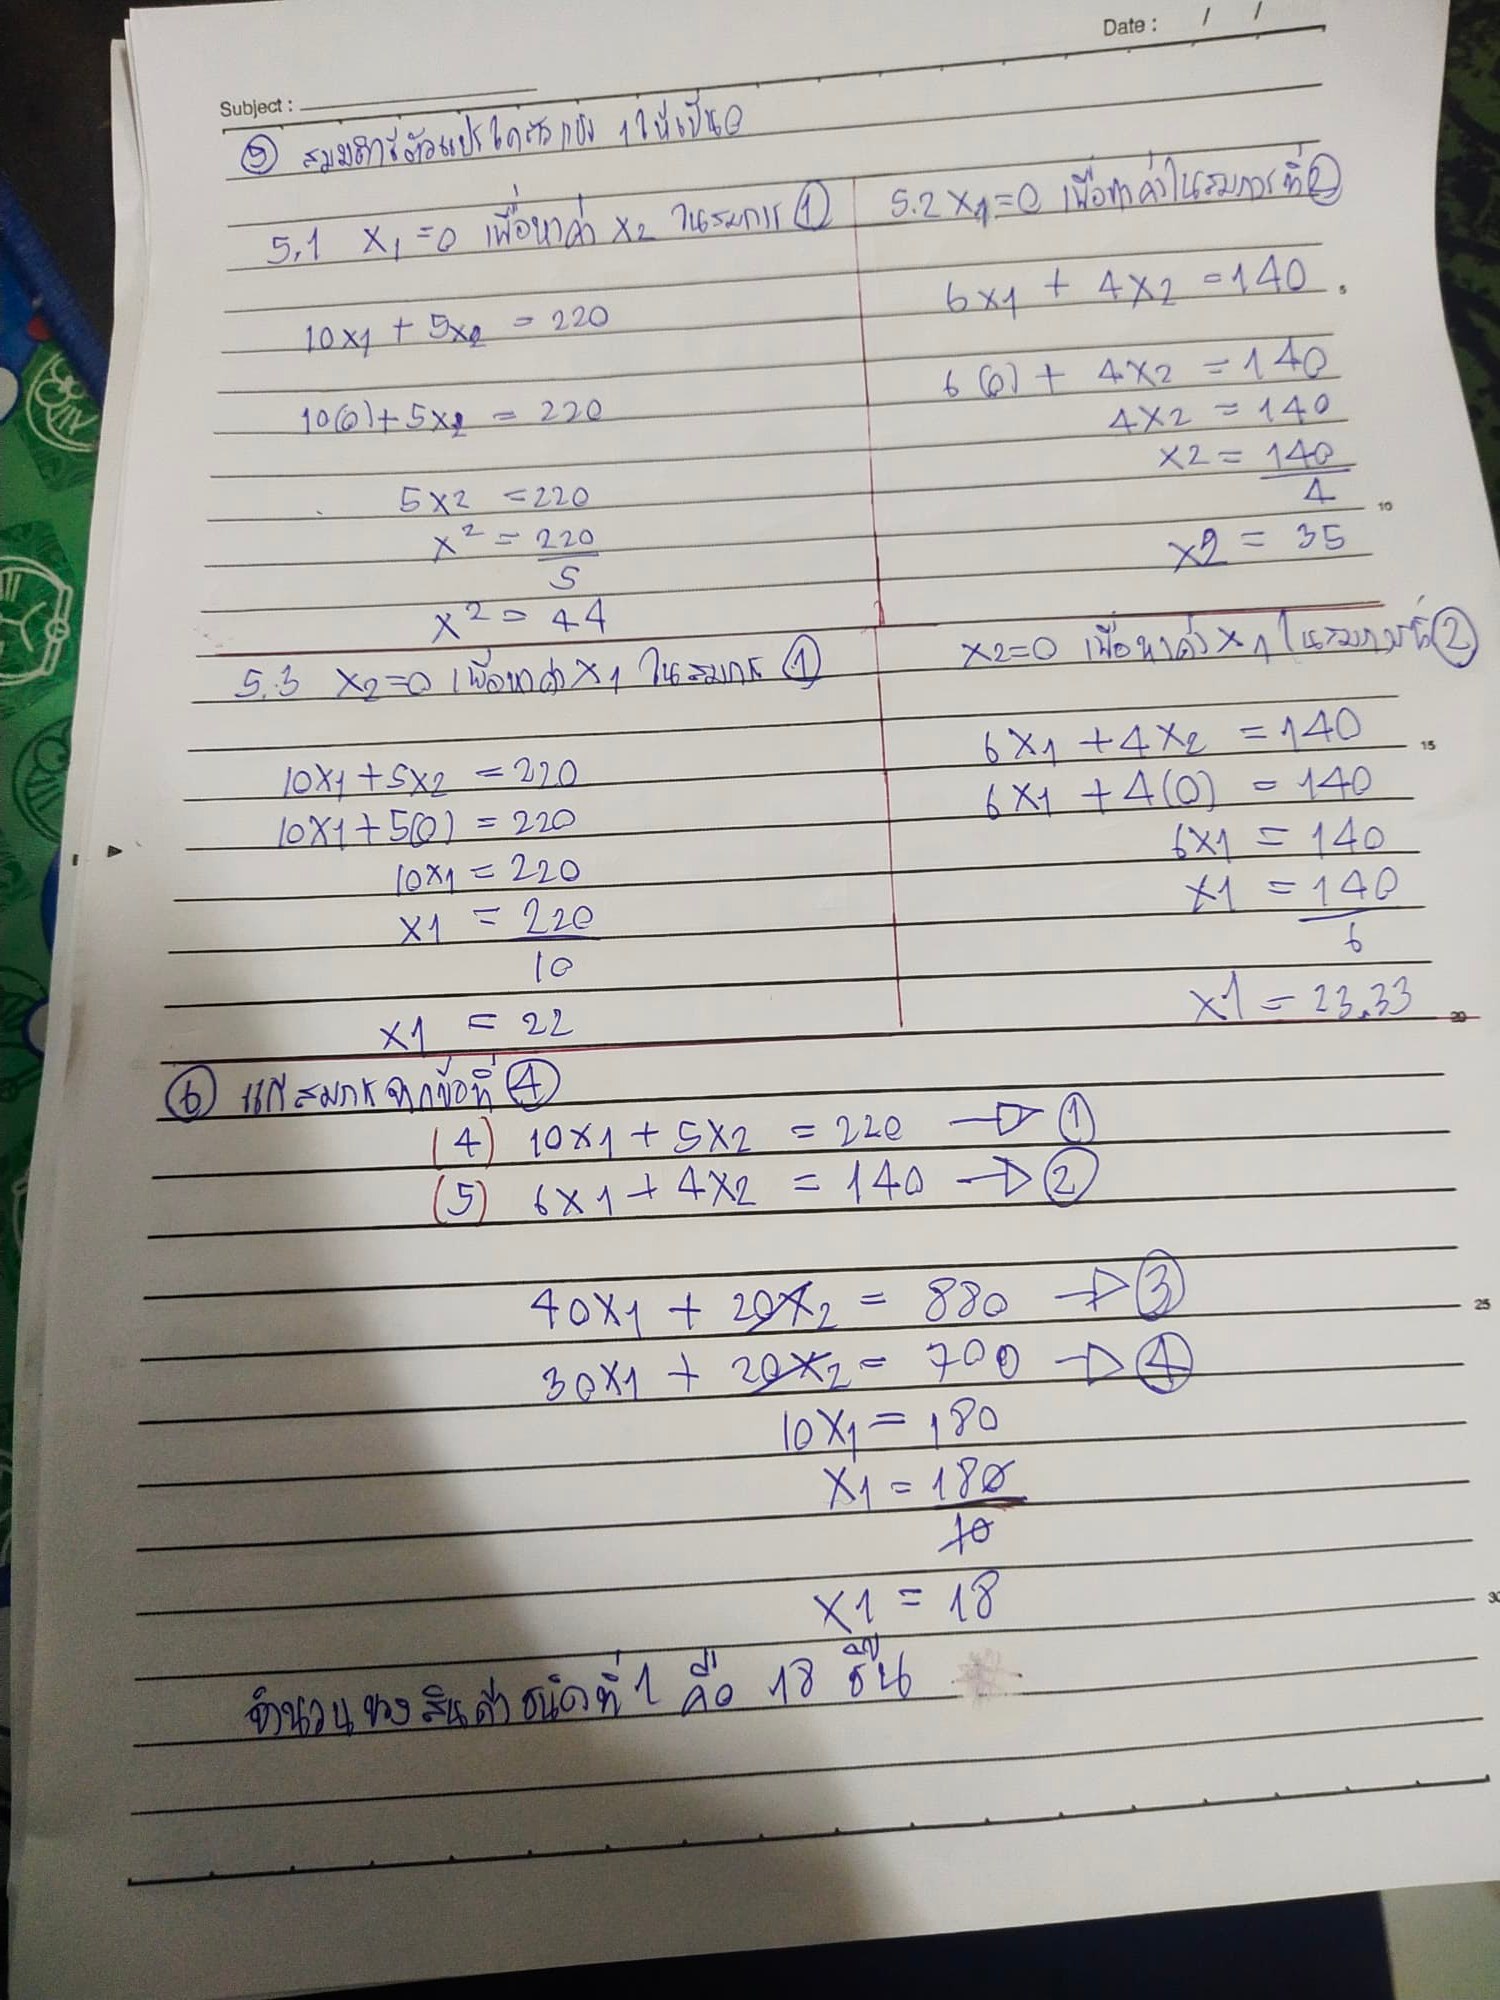 Date : / /
Subject :
⑤ สมมติให้ตัวแปรใดตัวแปร 1 ให้เป็น 0
5.1 X1 = 0 เพื่อหาค่า X2 ในสมการ ①
10X1 + 5X2 = 220
10(0) + 5X2 = 220
5X2 = 220
X2 = 220
5
X2 = 44
5.2 X1 = 0 เพื่อหาค่าในสมการที่ ②
6X1 + 4X2 = 140
5
6(0) + 4X2 = 140
4X2 = 140
X2 = 140
4
10
X2 = 35
5.3 X2 = 0 เพื่อหาค่า X1 ในสมการ ①
10X1 + 5X2 = 220
10X1 + 5(0) = 220
10X1 = 220
X1 = 220
10
X1 = 22
X2 = 0 เพื่อหาค่า X1 ในสมการที่ ②
6X1 + 4X2 = 140
15
6X1 + 4(0) = 140
6X1 = 140
X1 = 140
6
X1 = 23.33
20
⑥ แก้สมการจากข้อที่ ④
(4) 10X1 + 5X2 = 220 → ①
(5) 6X1 + 4X2 = 140 → ②
40X1 + 20X2 = 880 → ③
25
30X1 + 20X2 = 700 → ④
10X1 = 180
X1 = 180
10
X1 = 18
30
จำนวนของสินค้าชนิดที่ 1 คือ 18 ชิ้น